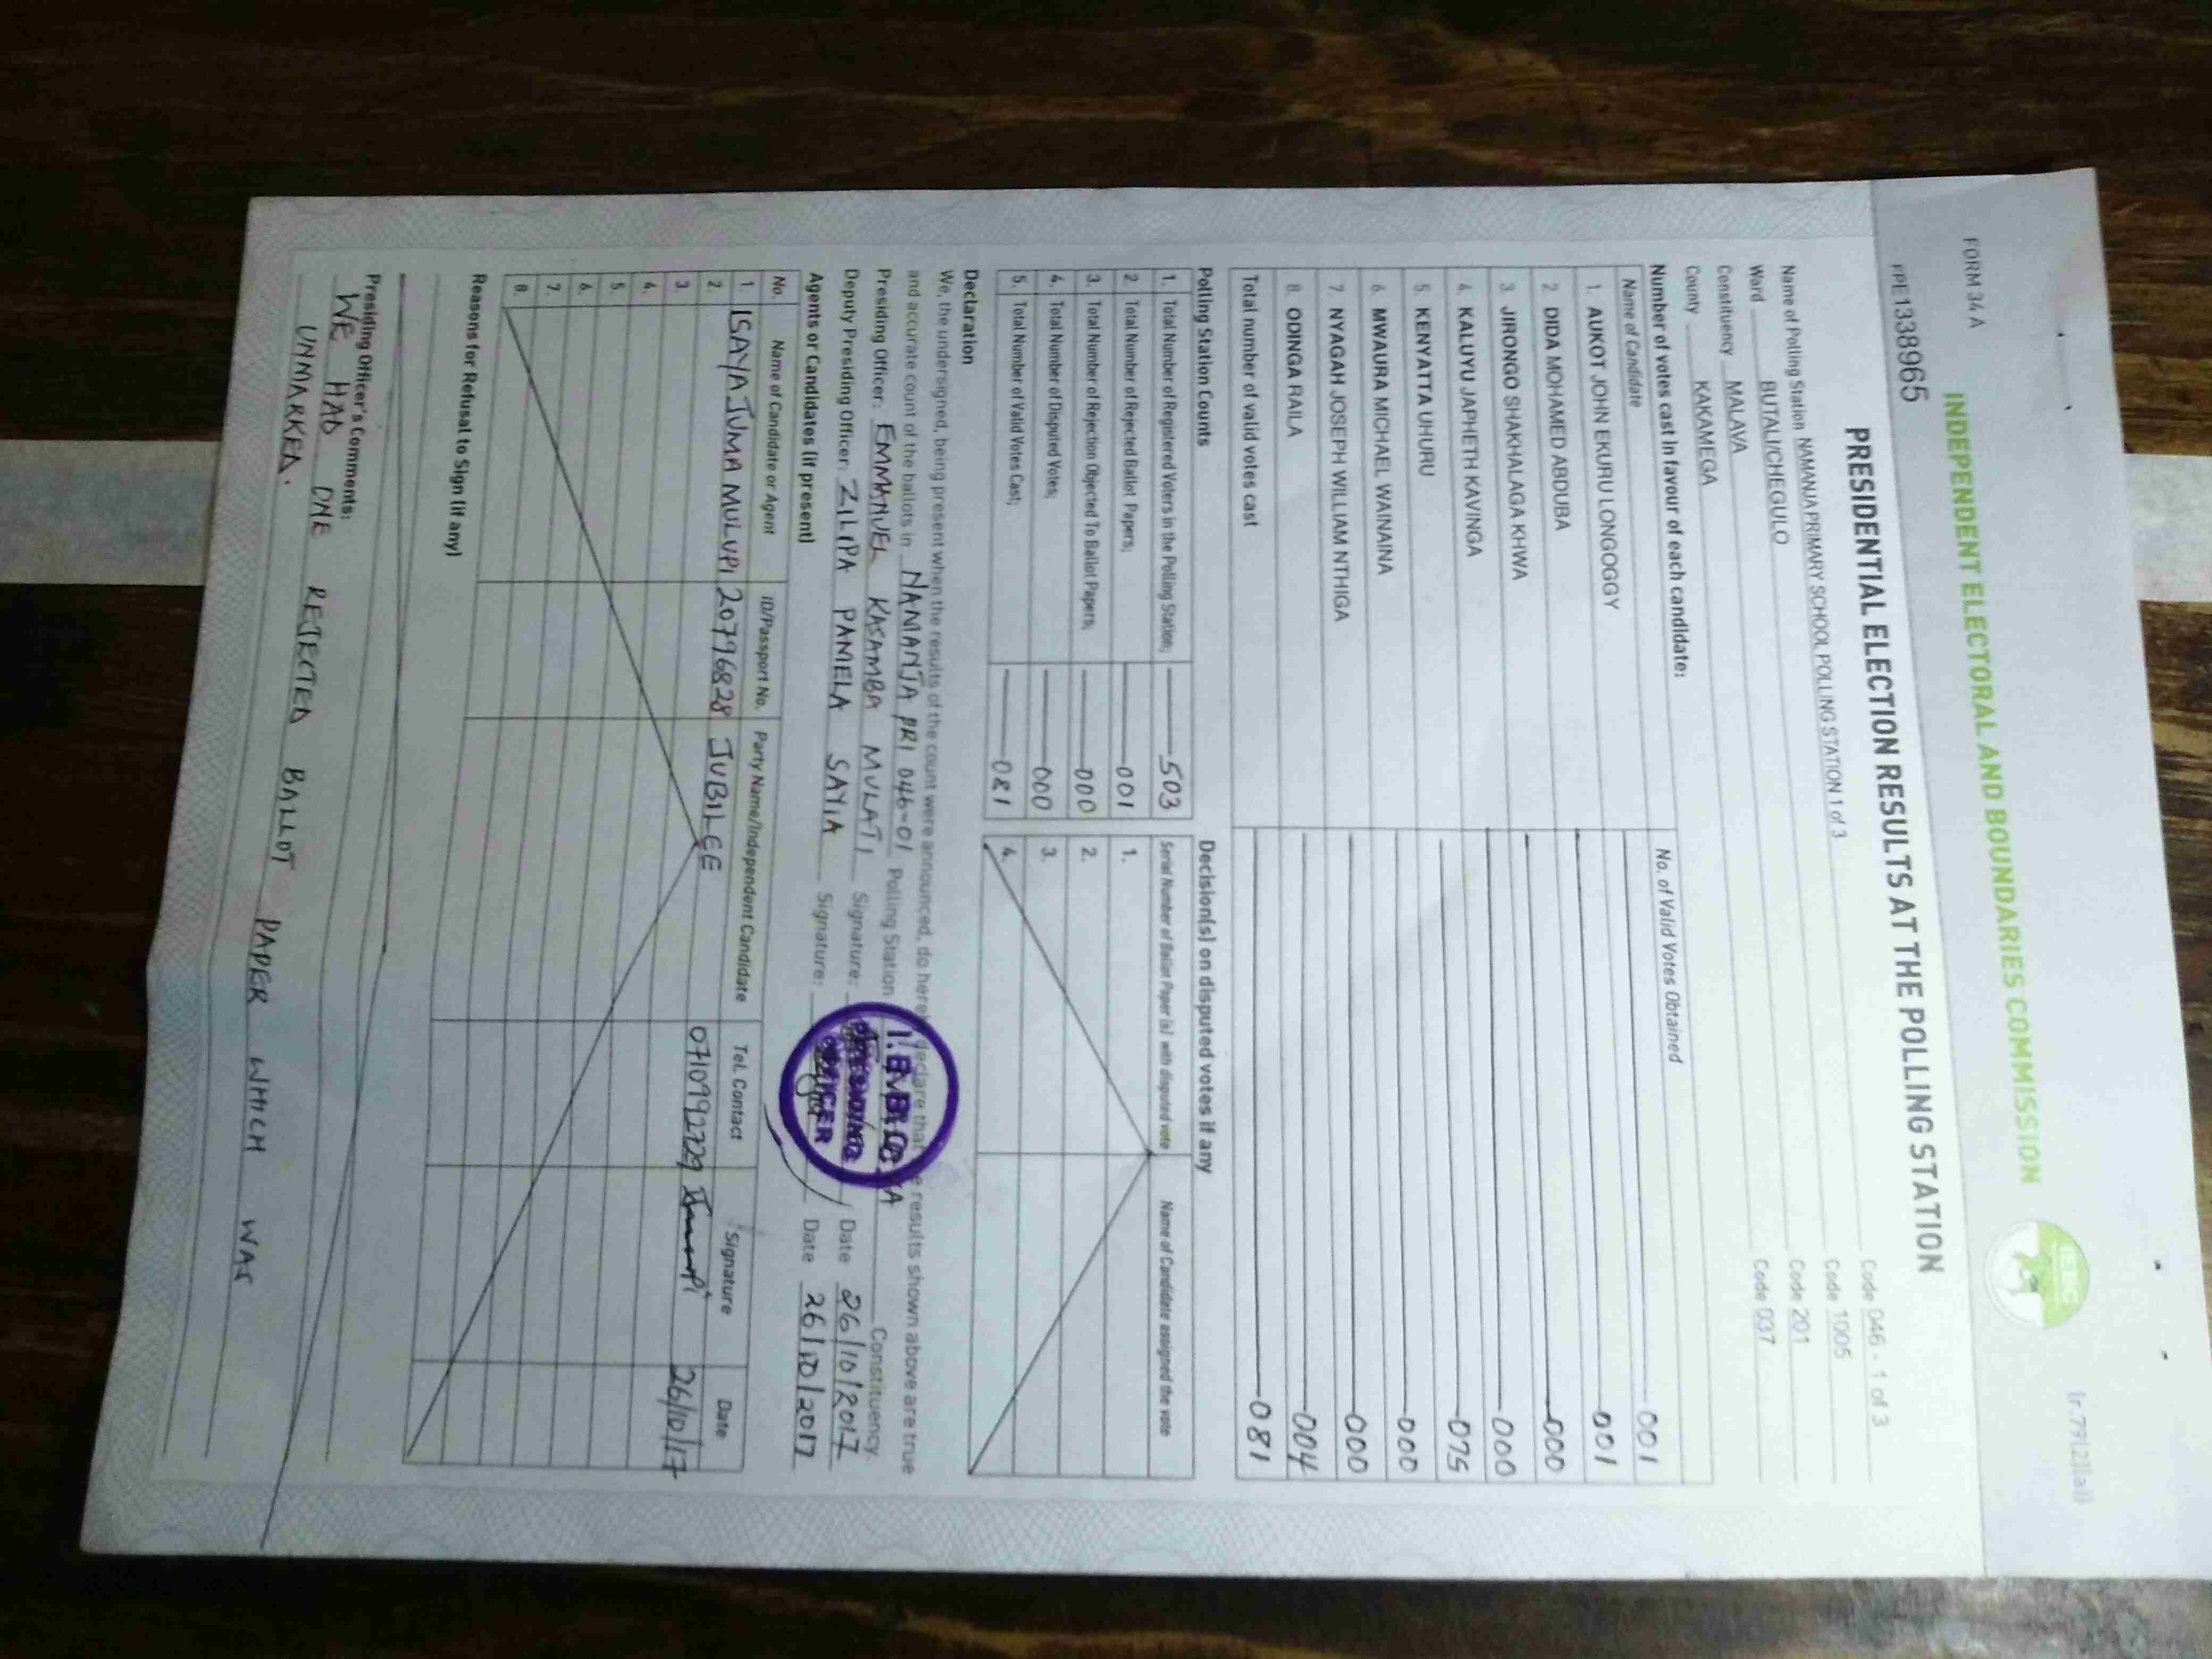 FORM 34 A
(r.79(2)(a))
INDEPENDENT ELECTORAL AND BOUNDARIES COMMISSION
IEBC
PPE1338965
PRESIDENTIAL ELECTION RESULTS AT THE POLLING STATION
Name of Polling Station NAMANJA PRIMARY SCHOOL POLLING STATION 1 of 3 Code 046 - 1 of 3
Ward BUTALI/CHEGULO Code 1005
Constituency MALAVA Code 201
County KAKAMEGA Code 037
Number of votes cast in favour of each candidate:
Name of Candidate No. of Valid Votes Obtained
1. AUKOT JOHN EKURU LONGOGGY 001
2. DIDA MOHAMED ABDUBA 001
3. JIRONGO SHAKHALAGA KHWA 000
4. KALUYU JAPHETH KAVINGA 000
5. KENYATTA UHURU 075
6. MWAURA MICHAEL WAINAINA 000
7. NYAGAH JOSEPH WILLIAM NTHIGA 000
8. ODINGA RAILA 004
Total number of valid votes cast 081
Polling Station Counts
1. Total Number of Registered Voters in the Polling Station; 503
2. Total Number of Rejected Ballot Papers; 001
3. Total Number of Rejection Objected To Ballot Papers; 000
4. Total Number of Disputed Votes; 000
5. Total Number of Valid Votes Cast; 081
Decision(s) on disputed votes if any
Serial Number of Ballot Paper (s) with disputed vote Name of Candidate assigned the vote
1.
2.
3.
4.
Declaration
We, the undersigned, being present when the results of the count were announced, do hereby declare that the results shown above are true
and accurate count of the ballots in NAMANJA PRI 046-01 Polling Station Constituency.
Presiding Officer: EMMANUEL KASAMBA MULATI Signature: Date 26/10/2017
Deputy Presiding Officer: ZILIPA PAMELA SAYIA Signature: Date 26/10/2017
OFFICER
Agents or Candidates (if present)
No. Name of Candidate or Agent ID/Passport No. Party Name/Independent Candidate Tel. Contact Signature Date
1 ISAYA JUMA MULUPI 20796828 JUBILEE 0710992729 26/10/17
2.
3
4.
5.
6.
7.
8.
Reasons for Refusal to Sign (if any)
Presiding Officer's Comments:
WE HAD ONE REJECTED BALLOT PAPER WHICH WAS
UNMARKED.